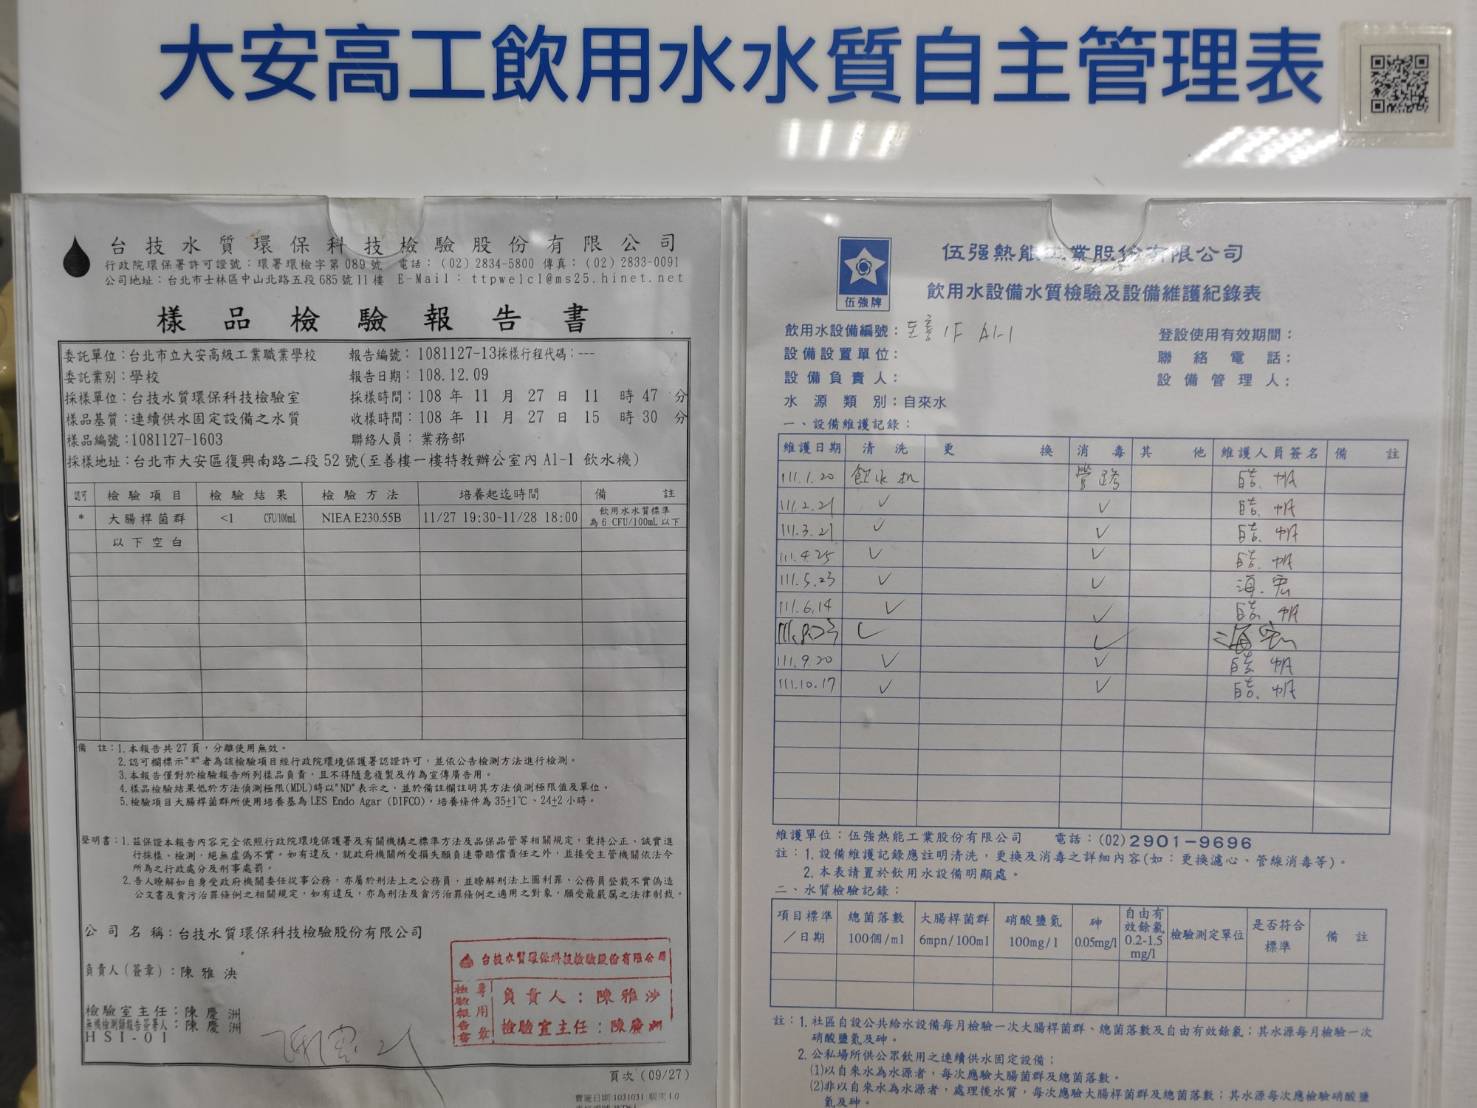 大安高工飲用水水質自主管理表
台技水質環保科技檢驗股份有限公司
行政院環保署許可證號：環署環檢字第089號 電話：(02)2834-5800 傳真：(02)2833-0091
公司地址：台北市士林區中山北路五段685號11樓 E-Mail：ttpwelcl@ms25.hinet.net
樣品檢驗報告書
委託單位：台北市立大安高級工業職業學校 報告編號：1081127-13採樣行程代碼：---
委託業別：學校 報告日期：108.12.09
採樣單位：台技水質環保科技檢驗室 採樣時間：108 年 11 月 27 日 11 時 47 分
樣品基質：連續供水固定設備之水質 收樣時間：108 年 11 月 27 日 15 時 30 分
樣品編號：1081127-1603 聯絡人員：業務部
採樣地址：台北市大安區復興南路二段52號(至善樓一樓特教辦公室內 A1-1 飲水機)
認可 檢驗項目 檢驗結果 檢驗方法 培養起迄時間 備註
* 大腸桿菌群 <1 CFU/100mL NIEA E230.55B 11/27 19:30-11/28 18:00 飲用水水質標準
為6 CFU/100mL以下
以下空白
備 註：1.本報告共27頁，分離使用無效。
2.認可欄標示"*"者為該檢驗項目經行政院環境保護署認證許可，並依公告檢測方法進行檢測。
3.本報告僅對於檢驗報告所列樣品負責，且不得隨意複製及作為宣傳廣告用。
4.樣品檢驗結果低於方法偵測極限(MDL)時以"ND"表示之，並於備註欄註明其方法偵測極限值及單位。
5.檢驗項目大腸桿菌群所使用培養基為LES Endo Agar (DIFCO)，培養條件為35±1℃、24±2小時。
聲明書：1.茲保證本報告內容完全依照行政院環境保護署及有關機構之標準方法及品保品管等相關規定，秉持公正、誠實進
行採樣、檢測，絕無虛偽不實。如有違反，就政府機關所受損失願負連帶賠償責任之外，並接受主管機關依法令
所為之行政處分及刑事處罰。
2.吾人瞭解如自身受政府機關委任從事公務，亦屬於刑法上之公務員，並瞭解刑法上圖利罪、公務員登載不實偽造
公文書及貪污治罪條例之相關規定，如有違反，亦為刑法及貪污治罪條例之適用之對象，願受最嚴厲之法律制裁。
公司名稱：台技水質環保科技檢驗股份有限公司
負責人(簽章)：陳雅泱
檢驗室主任：陳慶洲
無機檢測類報告簽署人：陳慶洲
HSI-01
台技水質環保科技檢驗股份有限公司
檢驗報告書
專用章
負責人：陳雅泱
檢驗室主任：陳慶洲
頁次(09/27)
伍強牌
伍強熱能工業股份有限公司
飲用水設備水質檢驗及設備維護紀錄表
飲用水設備編號：至善1F A1-1 登設使用有效期間：
設備設置單位： 聯絡電話：
設備負責人： 設備管理人：
水源類別：自來水
一、設備維護記錄：
維護日期 清洗 更換 消毒 其他 維護人員簽名 備註
111.1.20 飲水机 管路 皓帆
111.2.21 ✓ ✓ 皓帆
111.3.21 ✓ ✓ 皓帆
111.4.25 ✓ ✓ 皓帆
111.5.23 ✓ ✓ 海宏
111.6.14 ✓ ✓ 皓帆
111.8.23 ✓ ✓ 海宏
111.9.20 ✓ ✓ 皓帆
111.10.17 ✓ ✓ 皓帆
維護單位：伍強熱能工業股份有限公司 電話：(02)2901-9696
註：1.設備維護記錄應註明清洗，更換及消毒之詳細內容(如：更換濾心、管線消毒等)。
2.本表請置於飲用水設備明顯處。
二、水質檢驗記錄：
項目標準／日期 總菌落數 100個/ml 大腸桿菌群 6mpn/100ml 硝酸鹽氮 100mg/l 砷 0.05mg/l 自由有效餘氯 0.2-1.5 mg/l 檢驗測定單位 是否符合標準 備註
註：1.社區自設公共給水設備每月檢驗一次大腸桿菌群、總菌落數及自由有效餘氯；其水源每月檢驗一次
硝酸鹽氮及砷。
2.公私場所供公眾飲用之連續供水固定設備：
(1)以自來水為水源者，每次應驗大腸菌群及總菌落數。
(2)非以自來水為水源者，處理後水質，每次應驗大腸桿菌群及總菌落數；其水源每次應檢驗硝酸鹽
氮及砷。